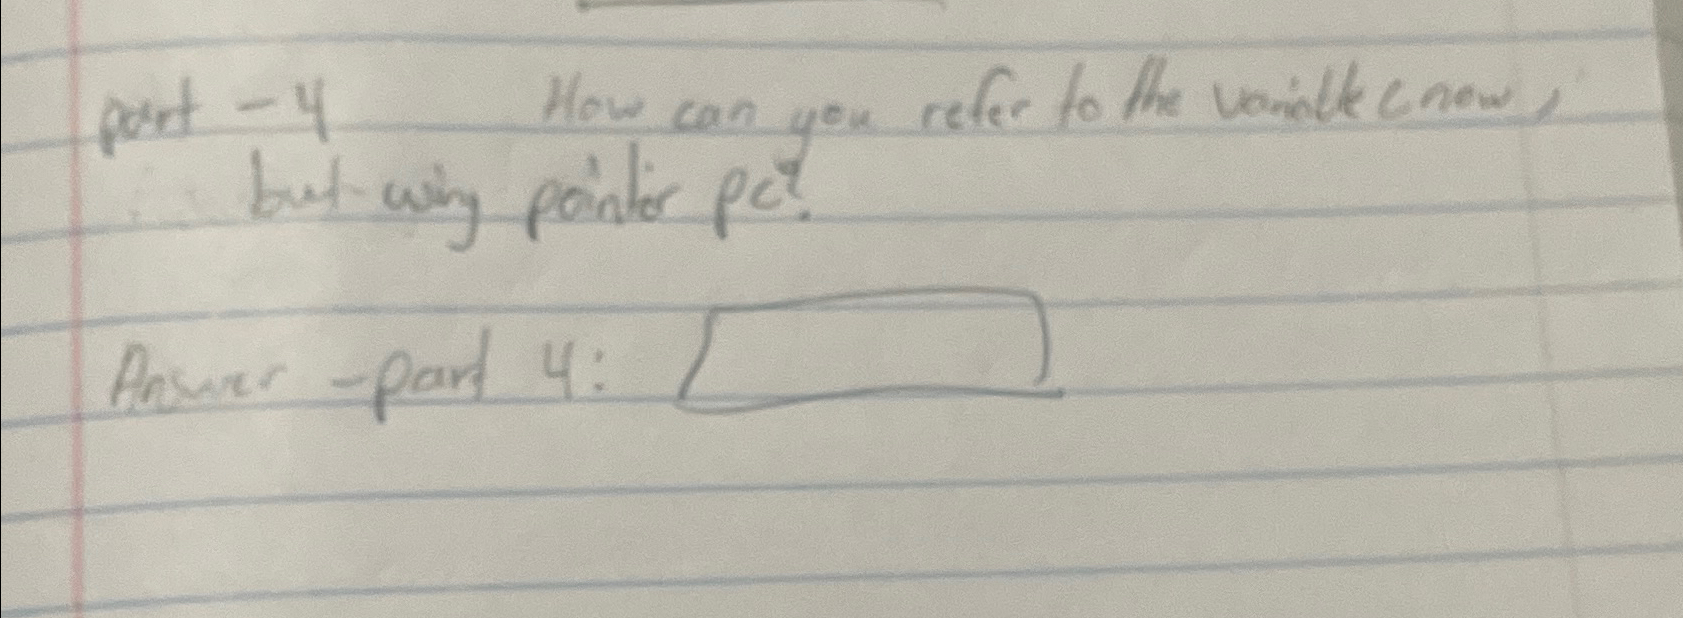 part - 4 How can you refer to the variable c now,
but using pointer pc?
Answer - part 4: